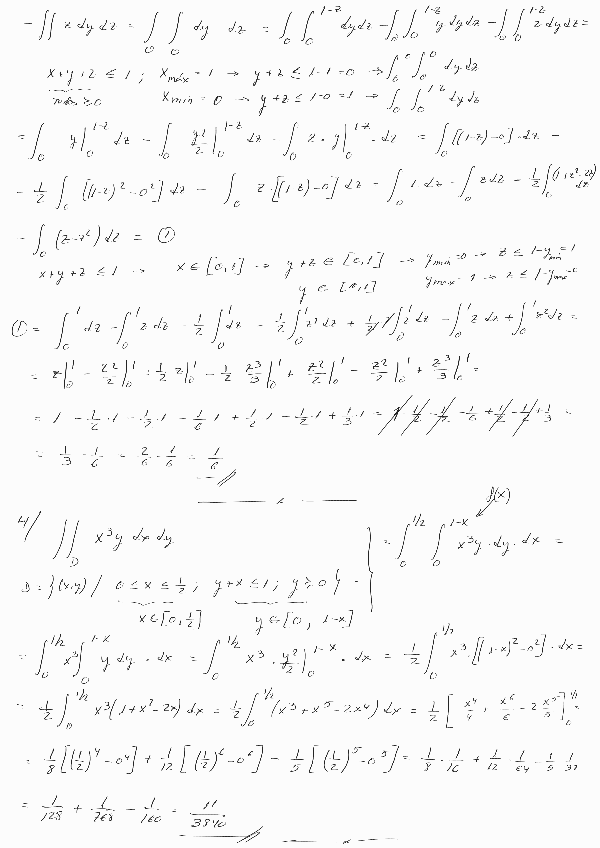 - ∬ x dy dz = ∫₀ ∫₀ dy dz = ∫₀ ∫₀^{1-z} dy dz - ∫₀ ∫₀^{1-z} y dy dz - ∫₀ ∫₀^{1-z} z dy dz =
x+y+z ≤ 1 ; x_{máx} = 1 → y+z ≤ 1-1=0 → ∫₀⁰ ∫₀⁰ dy dz
x_{mín} = 0 → y+z ≤ 1-0=1 → ∫₀ ∫₀^{1-z} dy dz
= ∫₀ y|₀^{1-z} dz - ∫₀ y²/2 |₀^{1-z} dz - ∫₀ z · y|₀^{1-z} · dz = ∫₀ [(1-z)-0] · dz -
- 1/2 ∫₀ [(1-z)² - 0²] dz - ∫₀ z · [(1-z)-0] dz = ∫₀ 1 dz - ∫₀ z dz - 1/2 ∫₀ (1+z²-2z) dz
- ∫₀ (z-z²) dz = ①
x+y+z ≤ 1 → x ∈ [0,1] → y+z ∈ [0,1] → y_{mín}=0 → z ≤ 1-y_{mín}=1
y ∈ [0,1] y_{max}=1 → z ≤ 1-y_{max}=0
① = ∫₀¹ dz - ∫₀¹ z dz - 1/2 ∫₀¹ dz - 1/2 ∫₀¹ z² dz + 1/2 · 2 ∫₀¹ z dz - ∫₀¹ z dz + ∫₀¹ z² dz =
= z|₀¹ - z²/2 |₀¹ - 1/2 z|₀¹ - 1/2 z³/3 |₀¹ + z²/2 |₀¹ - z²/2 |₀¹ + z³/3 |₀¹ =
= 1 - 1/2 · 1 - 1/2 · 1 - 1/6 · 1 + 1/2 · 1 - 1/2 · 1 + 1/3 · 1 = 1 - 1/2 - 1/2 - 1/6 + 1/2 - 1/2 + 1/3 =
= 1/3 - 1/6 = 2/6 - 1/6 = 1/6
f(x)
4/ ∬_D x³y dx dy = ∫₀^{1/2} ∫₀^{1-x} x³y · dy · dx =
D = {(x,y) / 0 ≤ x ≤ 1/2 ; y+x ≤ 1 ; y ≥ 0}
x ∈ [0, 1/2] y ∈ [0, 1-x]
= ∫₀^{1/2} x³ ∫₀^{1-x} y dy · dx = ∫₀^{1/2} x³ · y²/2 |₀^{1-x} · dx = 1/2 ∫₀^{1/2} x³ [(1-x)² - 0²] · dx =
= 1/2 ∫₀^{1/2} x³(1+x²-2x) dx = 1/2 ∫₀^{1/2} (x³+x⁵-2x⁴) dx = 1/2 [x⁴/4 + x⁶/6 - 2 x⁵/5]₀^{1/2} =
= 1/8 [(1/2)⁴ - 0⁴] + 1/12 [(1/2)⁶ - 0⁶] - 1/5 [(1/2)⁵ - 0⁵] = 1/8 · 1/16 + 1/12 · 1/64 - 1/5 · 1/32
= 1/128 + 1/768 - 1/160 = 11/3840